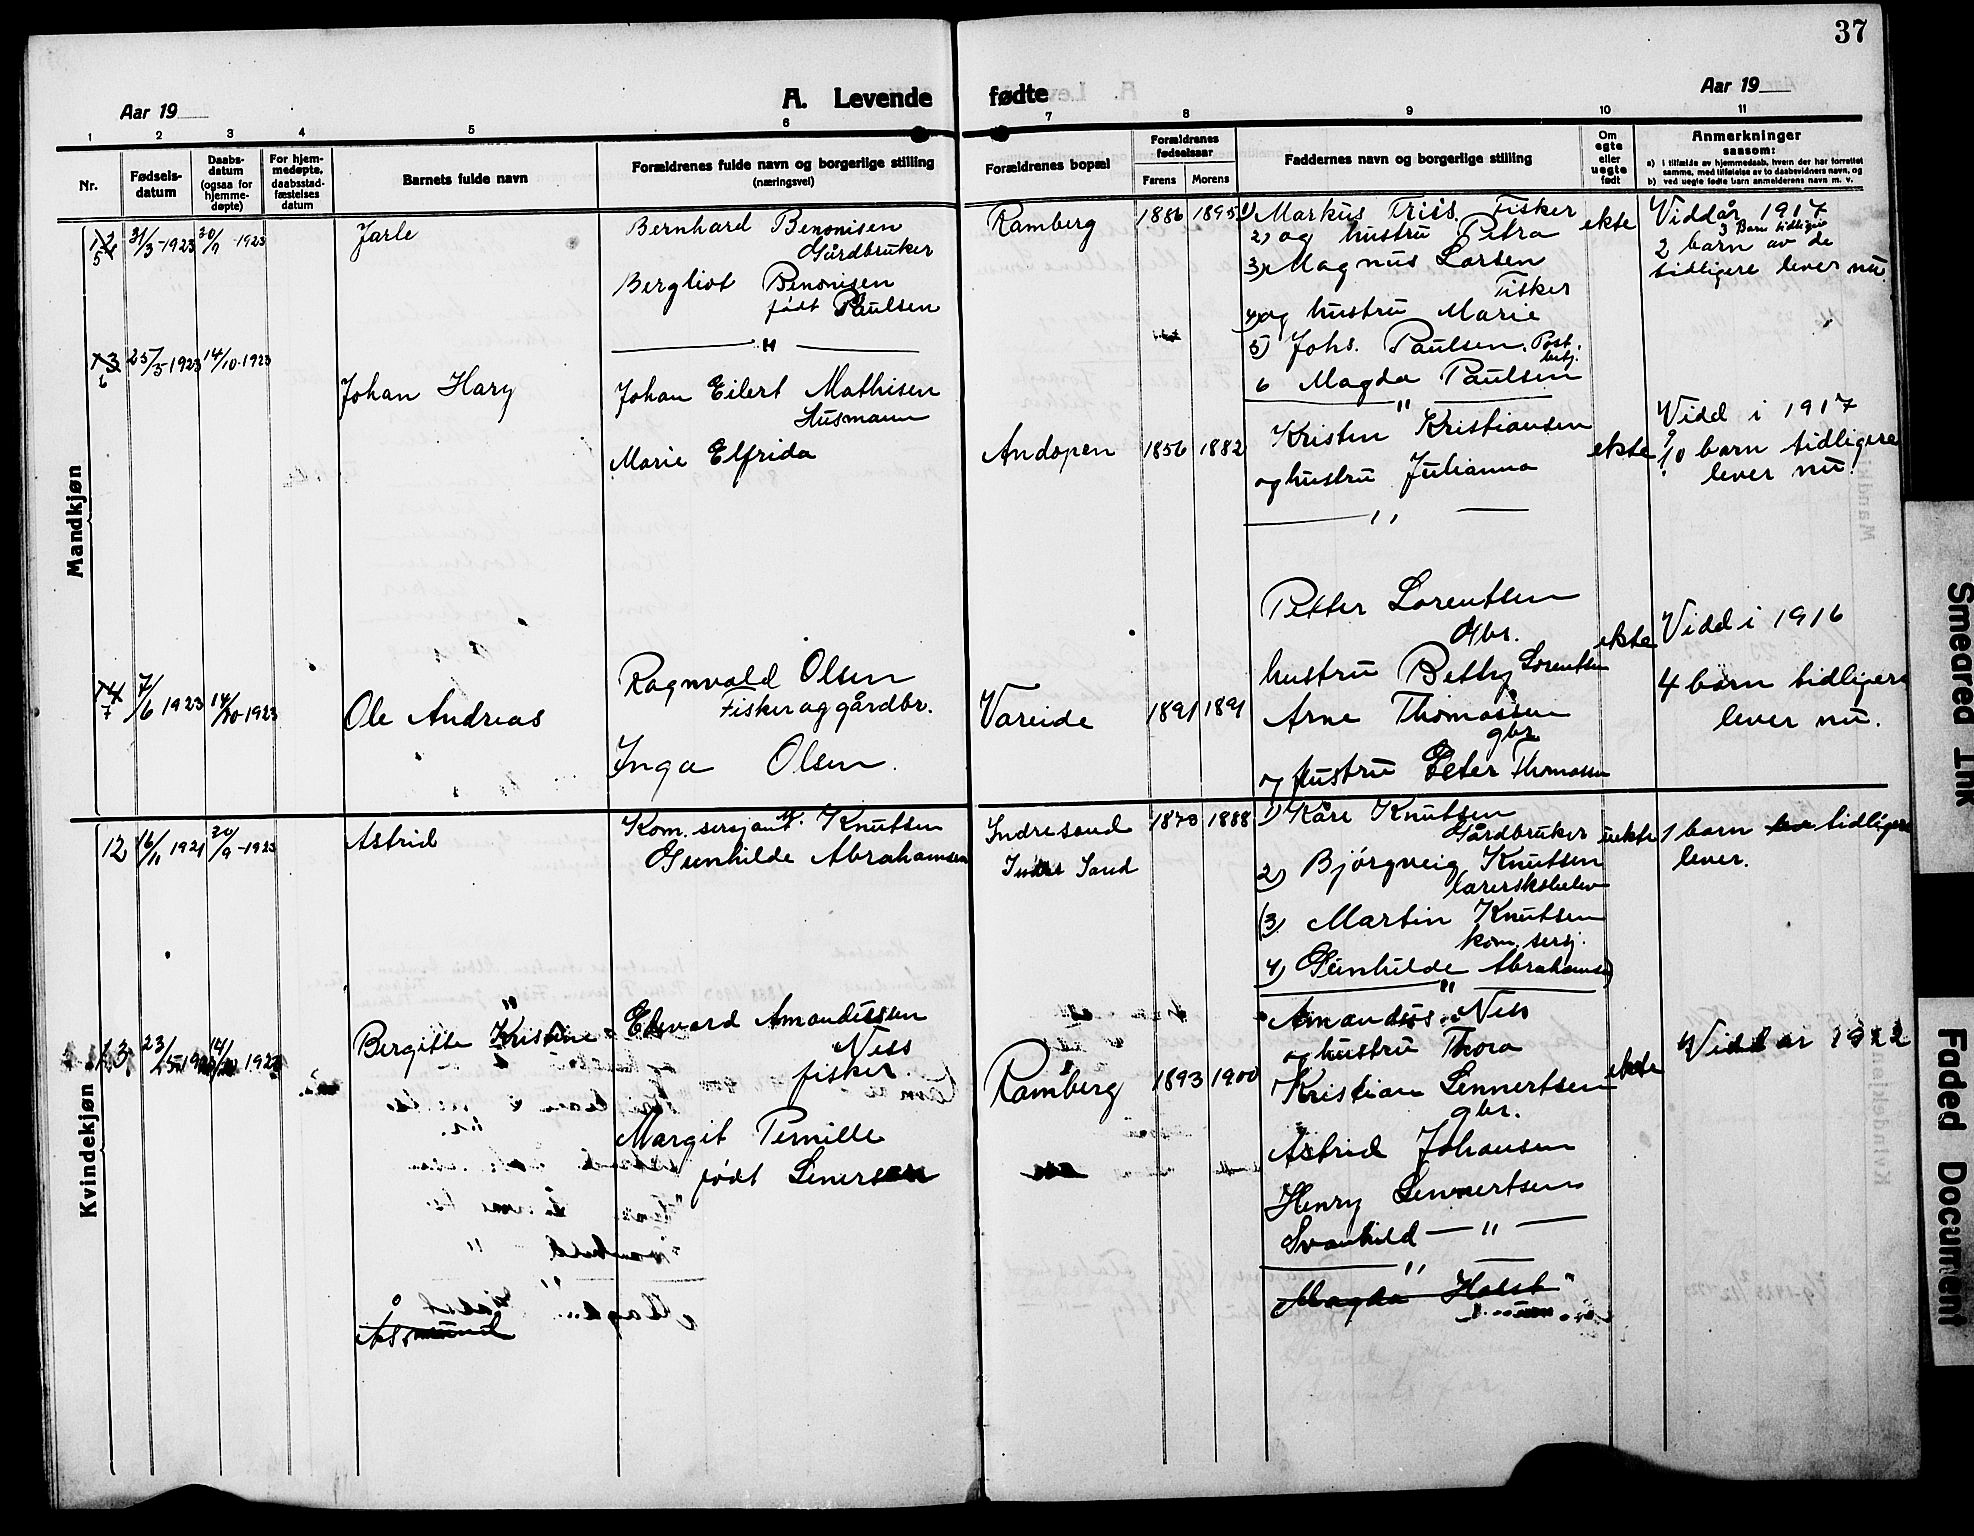 37
Aar 19
A. Levende fødte
Aar 19
1 2 3 4 5 6 7 8 9 10 11
Nr.
Fødsels-
datum
Daabs-
datum
(ogsaa for
hjemme-
døpte)
For hjem-
medøpte,
daabsstad-
fæstelses
datum
Barnets fulde navn
Forældrenes fulde navn og borgerlige stilling
(næringsvei)
Forældrenes bopæl
Forældrenes
fødselsaar
Farens Morens
Faddernes navn og borgerlige stilling
Om
egte
eller
uegte
født
Anmerkninger
saasom:
a) i tilfælde av hjemmedaab, hvem der har forrettet
samme, med tilføielse av to daabsvidners navn, og
b) ved uegte fødte barn anmelderens navn m. v.
Mandkjøn
12
5
31/3-1923
20/9-1923
Jarle
Bernhard Benonisen
Gårdbruker
Bergliot Benonisen
født Paulsen
Ramberg
1886 1895
1) Markus Friis Fisker
2) og hustru Petra
3) Magnus Larsen
Fisker
4) og hustru Marie
5) Johs. Paulsen, Post.
6 Magda Paulsen
ekte
Viddår 1917
3 Barn tidligere
2 barn av de
tidligere lever nu
13
6
25/5-1923
14/10-1923
Johan Hary
Johan Eilert Mathisen
Husmann
Marie Elfrida
Andopen
1856 1882
Kristen Kristiansen
og hustru Julianna
ekte
Vidd i 1917
10 barn tidligere
lever nu.
14
7
7/6 1923
14/10-1923
Ole Andreas
Ragnvald Olsen
Fisker og gårdbr.
Inga Olsen.
Vareide
1891 1891
Petter Lorentsen
Gbr.
hustru Betty Lorentsen
Arne Thomassen
gbr
og hustru Peter Thomassen
ekte
Vidd i 1916
4 barn tidligere
lever nu.
Kvindekjøn
12
16/11 1921
20/9-1923
Astrid
Kom. sersjant M. Knutsen
Gunhilde Abrahamsen
Indresand
Indre Sand
1873 1888
1) Kåre Knutsen
Gårdbruker
2) Bjørgveig Knutsen
3) Martin Knutsen
kom. sersj.
4) Gunhilde Abrahamsen
uekte
1 barn tidligere
lever.
13
Bergitte Kristine
Edvard Amandussen
Ness
fisker
Margit Pernille
født Lenertsen
Ramberg
1893 1900
Amandus Ness
og hustru Thora
Kristian Lennertsen
gbr.
Astrid Johansen
Henry Lennertsen
Svanhild — " —
Magda Holst
ekte
Vidd ar 1922
Åsmund
Smeared Ink
Faded Document